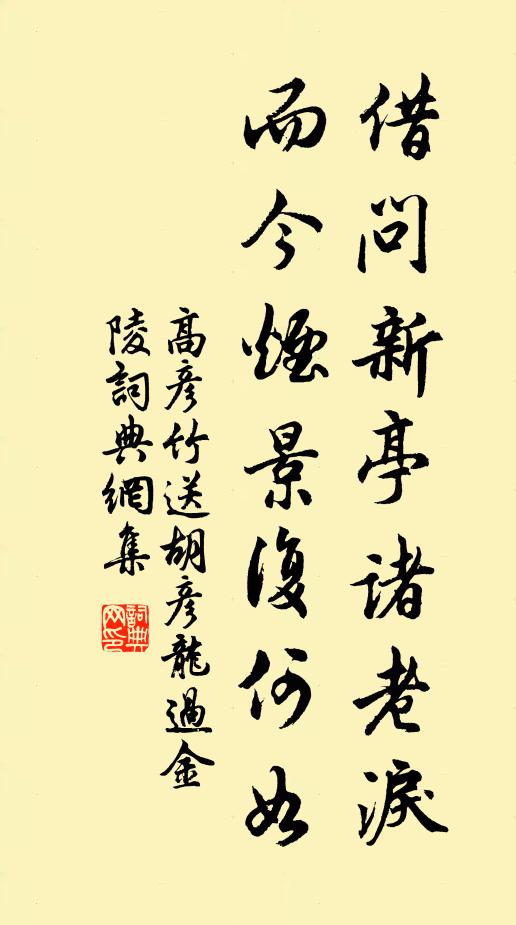 借問新亭諸老淚
而今煙景復何如
高彥竹送胡彥龍過金
陵詞典網集
詞典網印